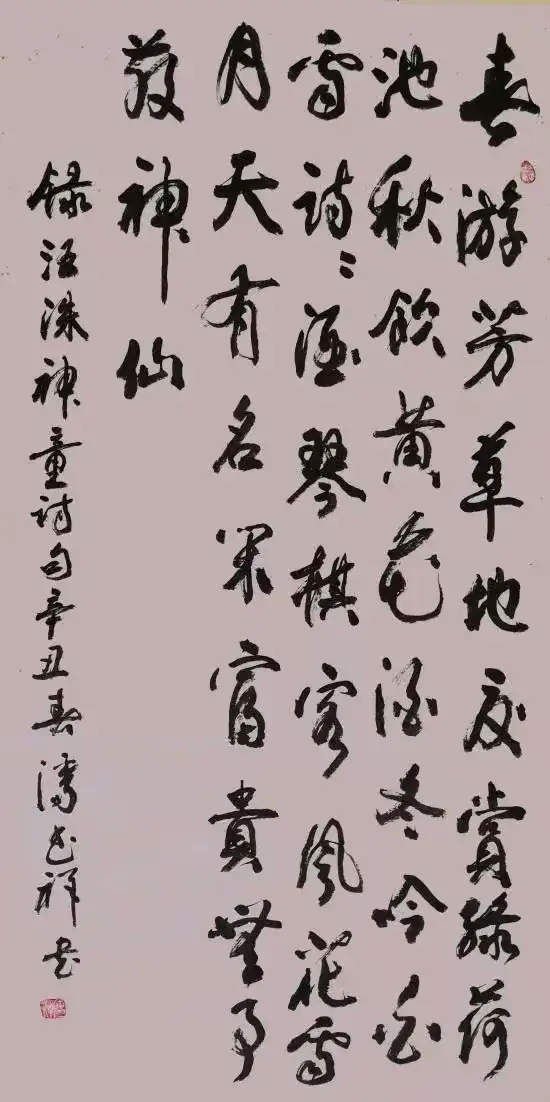 春游芳草地夏賞緑荷
池秋飲黄花酒冬吟白
雪诗〻酒琴棋客风花雪
月天有名闲富貴無事
散神仙
録汪洙神童诗句辛丑春祥书